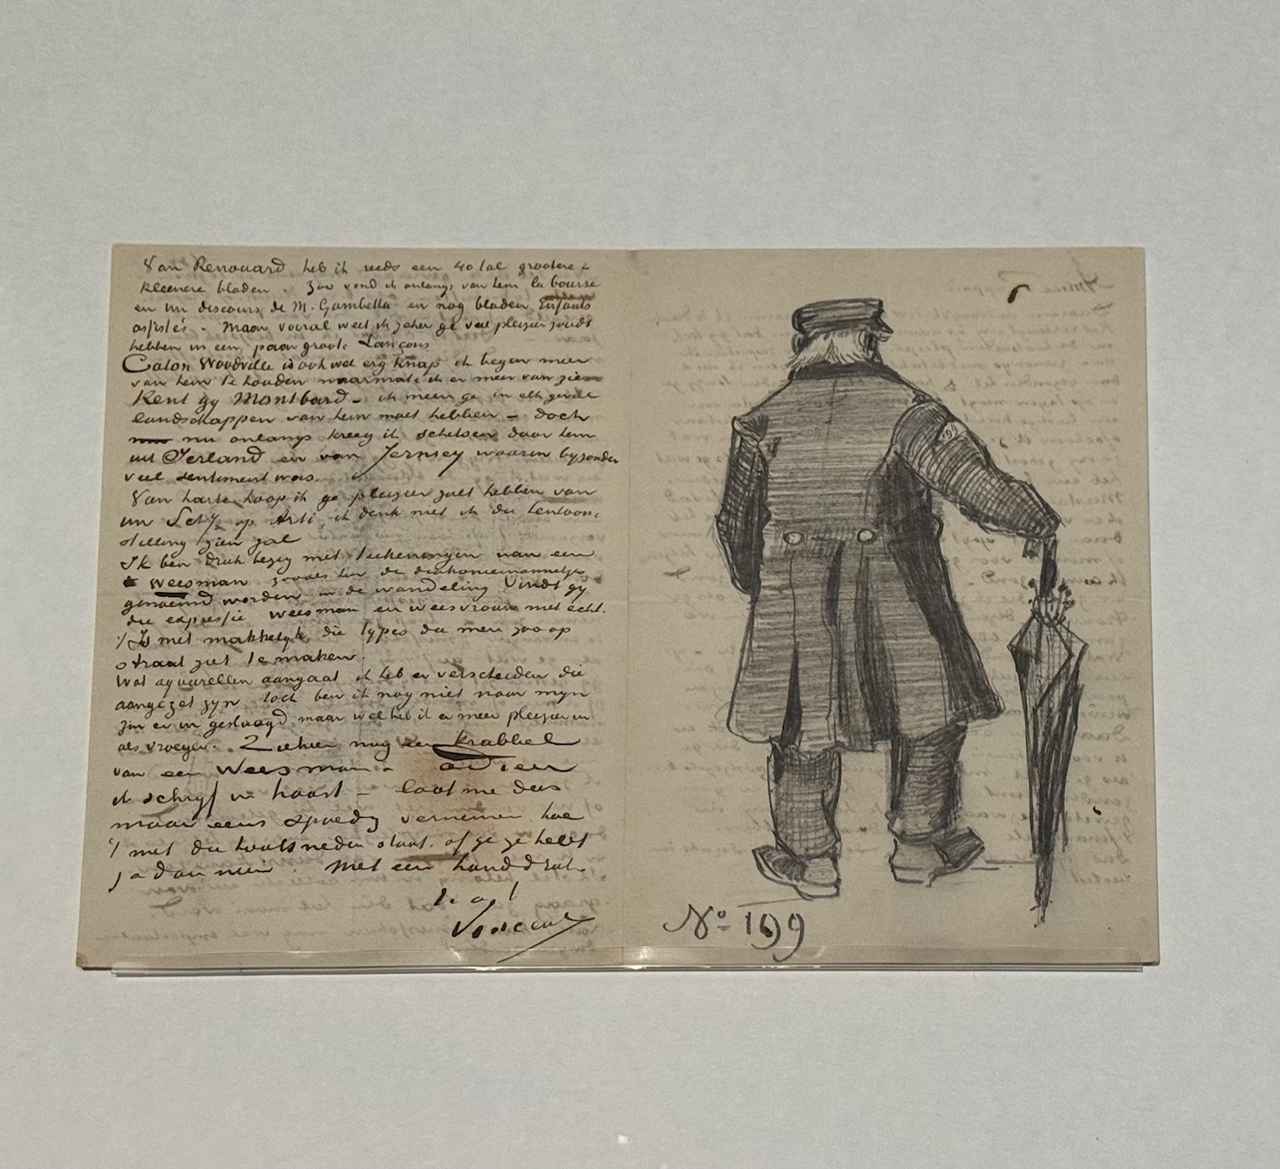 Van Renouard heb ik reeds een 40 tal grootere &
kleenere bladen. Zoo vond ik onlangs van hem la bourse
en un discours de M. Gambetta en nog bladen Enfants
assistés. Maar vooral weet ik zeker ge veel pleizier zoudt
hebben in een paar groote Lançons
Caton Woodville is ook wel erg knap ik begin meer
van hem te houden naarmate ik er meer van zie
Kent gij Montbard – ik meen ge in elk geval
landschappen van hem moet hebben – doch
nu onlangs kreeg ik schetsen door hem
uit Ierland en van Jernsey waarin byzonder
veel sentiment was.
Van harte hoop ik ge pleizier zult hebben van
uw op Arti, ik denk niet ik die tentoon-
stelling zien zal
Ik ben druk bezig met teekeningen van een
weesman zooals hier de diakoniemannetjes
genoemd worden in de wandeling Vindt gij
die expressie weesman en weesvrouw niet echt.
't Is niet makkelyk die types die men zoo op
straat ziet te maken.
Wat aquarellen aangaat ik heb er verscheiden die
aangezet zyn toch ben ik nog niet naar myn
zin er in geslaagd maar wel heb ik er meer pleizier in
als vroeger. Ziehier nog een krabbel
van een weesman. adieu
ik schryf in haast – laat me dus
maar eens spoedig vernemen hoe
't met die houtsneden staat. of ge ze hebt
ja dan neen. Met een handdruk
t. à. t
Vincent
No 199